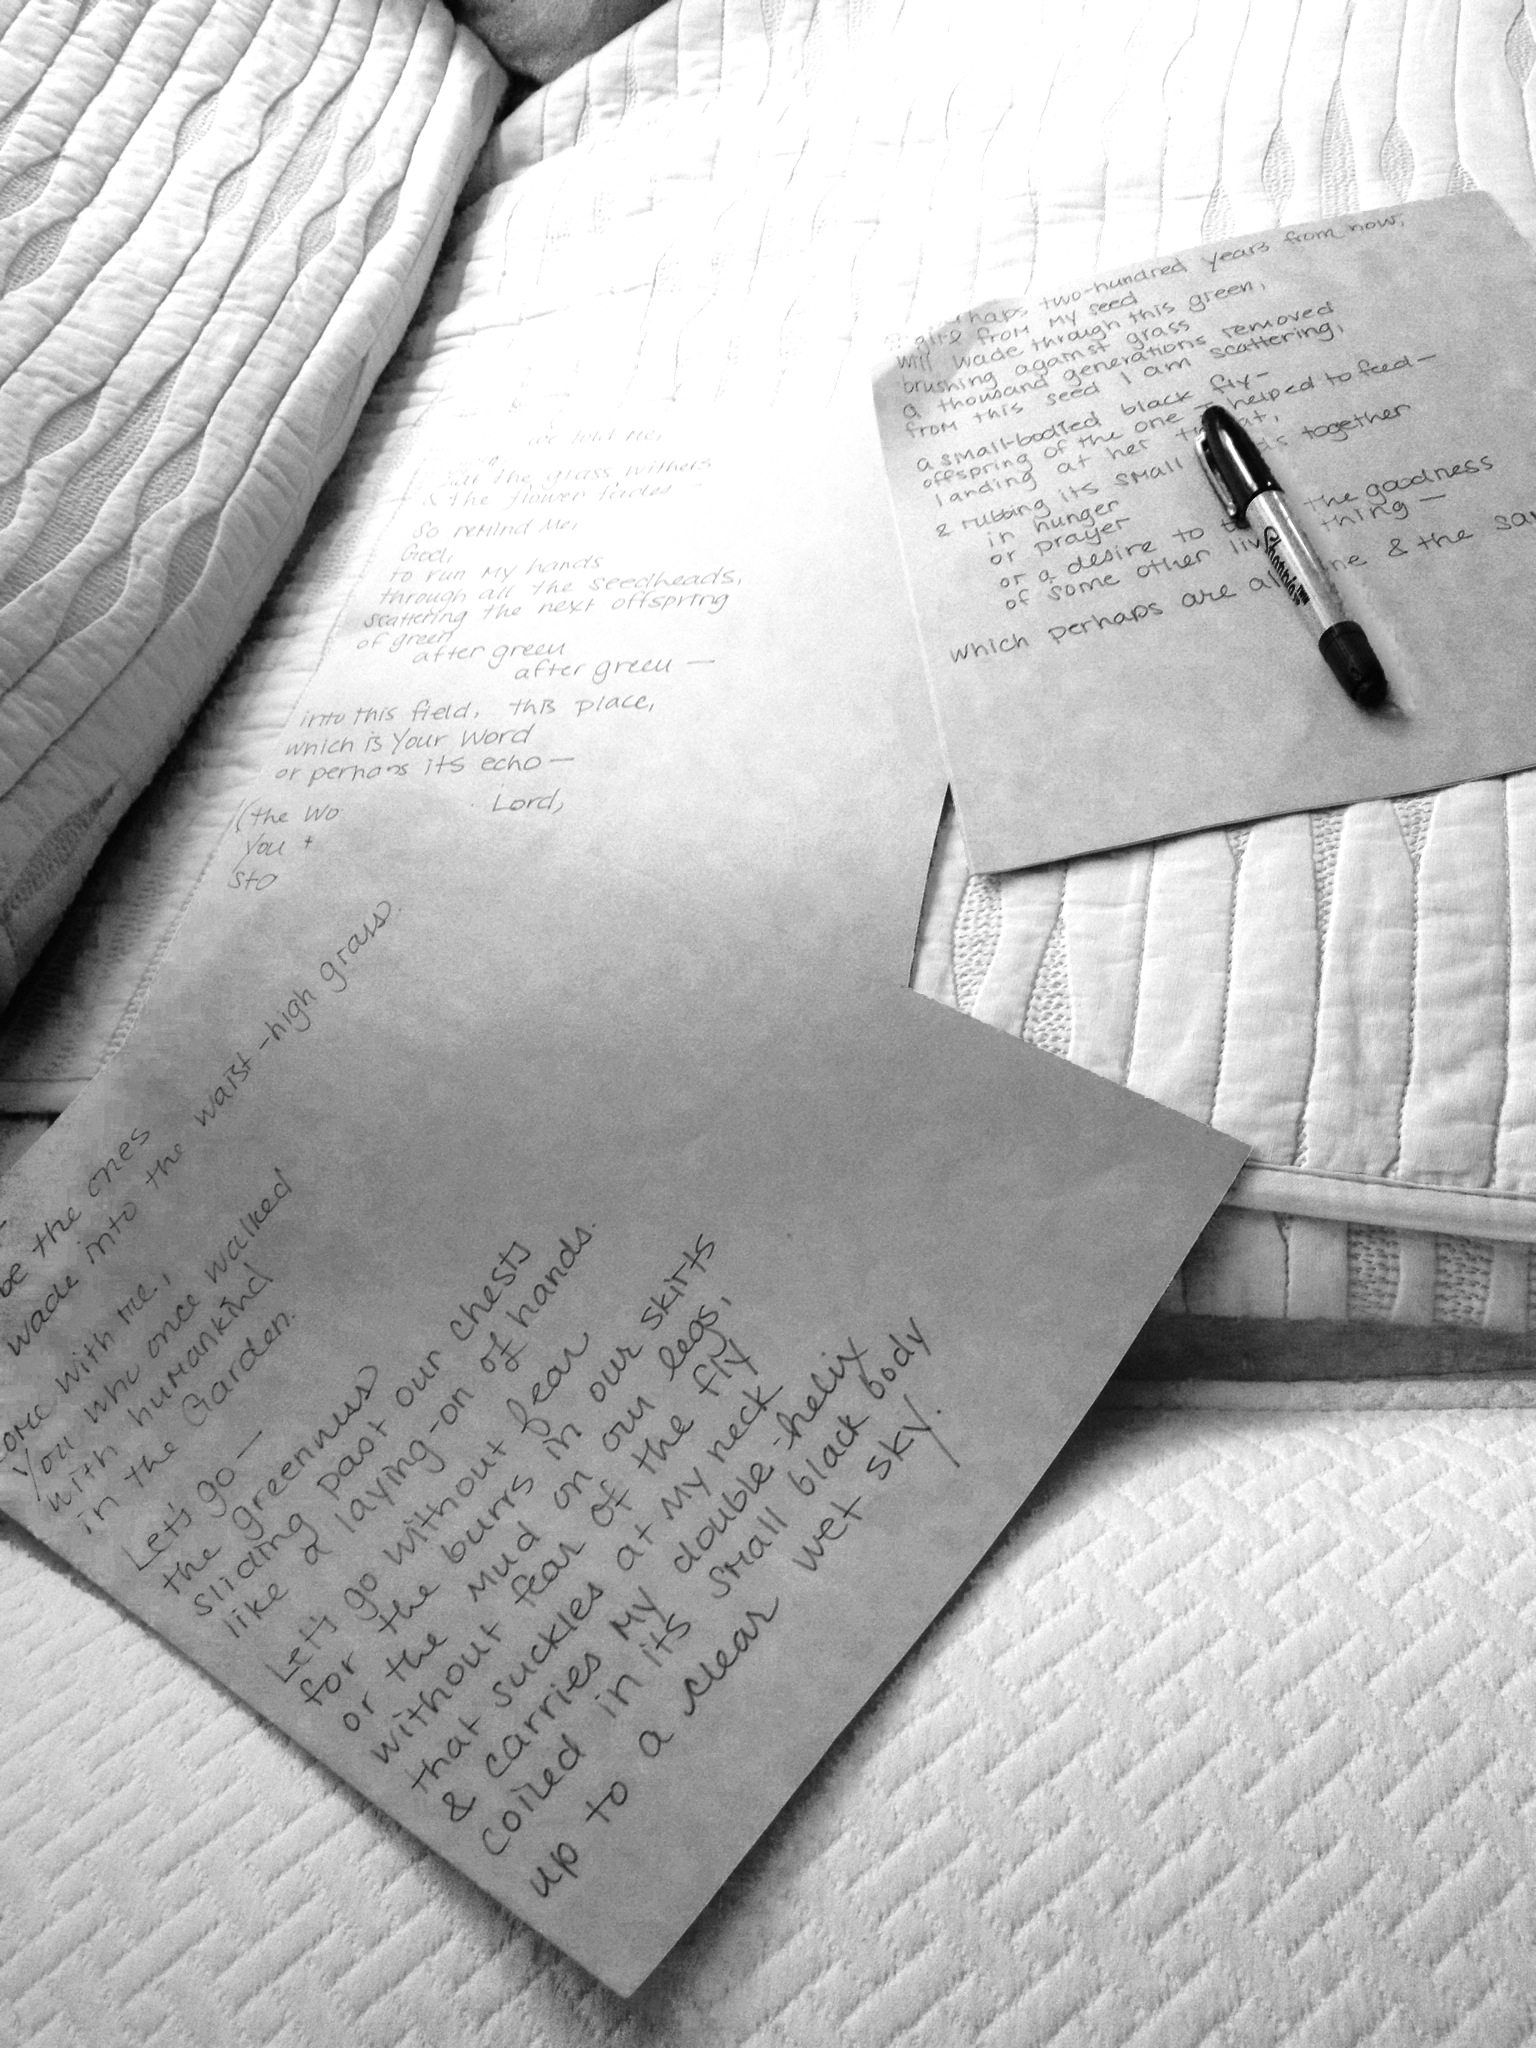 be the ones
wade into the waist-high grass.
come with me,
You who once walked
with humankind
in the Garden.
Let's go —
the greenness
sliding past our chests
like a laying-on of hands.
Let's go without fear
for the burrs in our skirts
or the mud on our legs,
without fear of the fly
that suckles at my neck
& carries my double-helix
coiled in its small black body
up to a clear wet sky.
told me,
the grass withers
& the flower fades
So remind me,
God,
to run my hands
through all the seedheads,
scattering the next offspring
of green
after green
after green —
into this field, this place,
which is Your Word
or perhaps its echo —
(the Wo Lord,
You
sto
two-hundred years from now,
a girl from my seed
will wade through this green,
brushing against grass
a thousand generations removed
from this seed I am scattering,
a small-bodied black fly—
offspring of the one helped to feed—
landing at her
& rubbing its small together
in hunger
or prayer
or a desire to the goodness
of some other thing —
which perhaps are & the
Sharpie